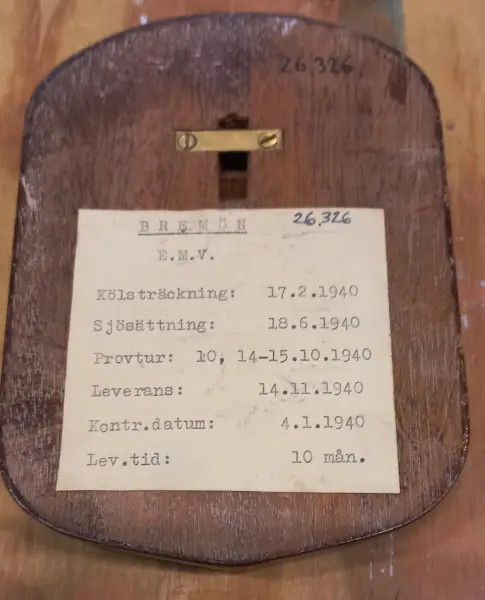 26,326
BREMÖN 26,326
E.M.V.
Kölsträckning: 17.2.1940
Sjösättning: 18.6.1940
Provtur: 10, 14-15.10.1940
Leverans: 14.11.1940
Kontr.datum: 4.1.1940
Lev.tid: 10 mån.